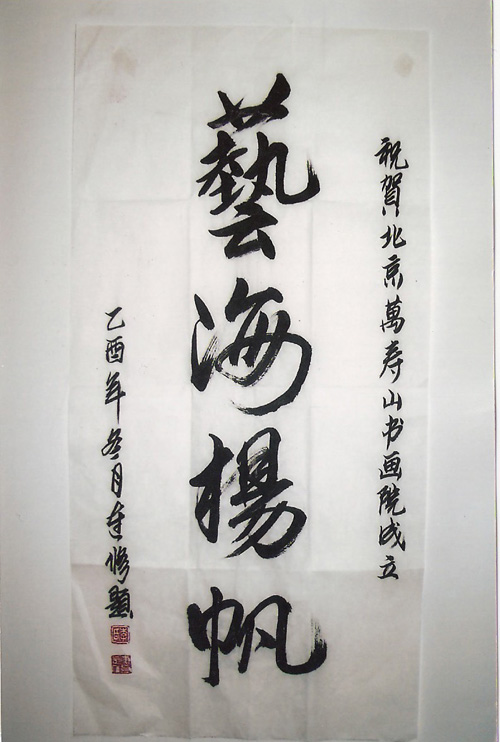 祝賀北京萬寿山书画院成立
藝海楊帆
乙酉年冬月修题